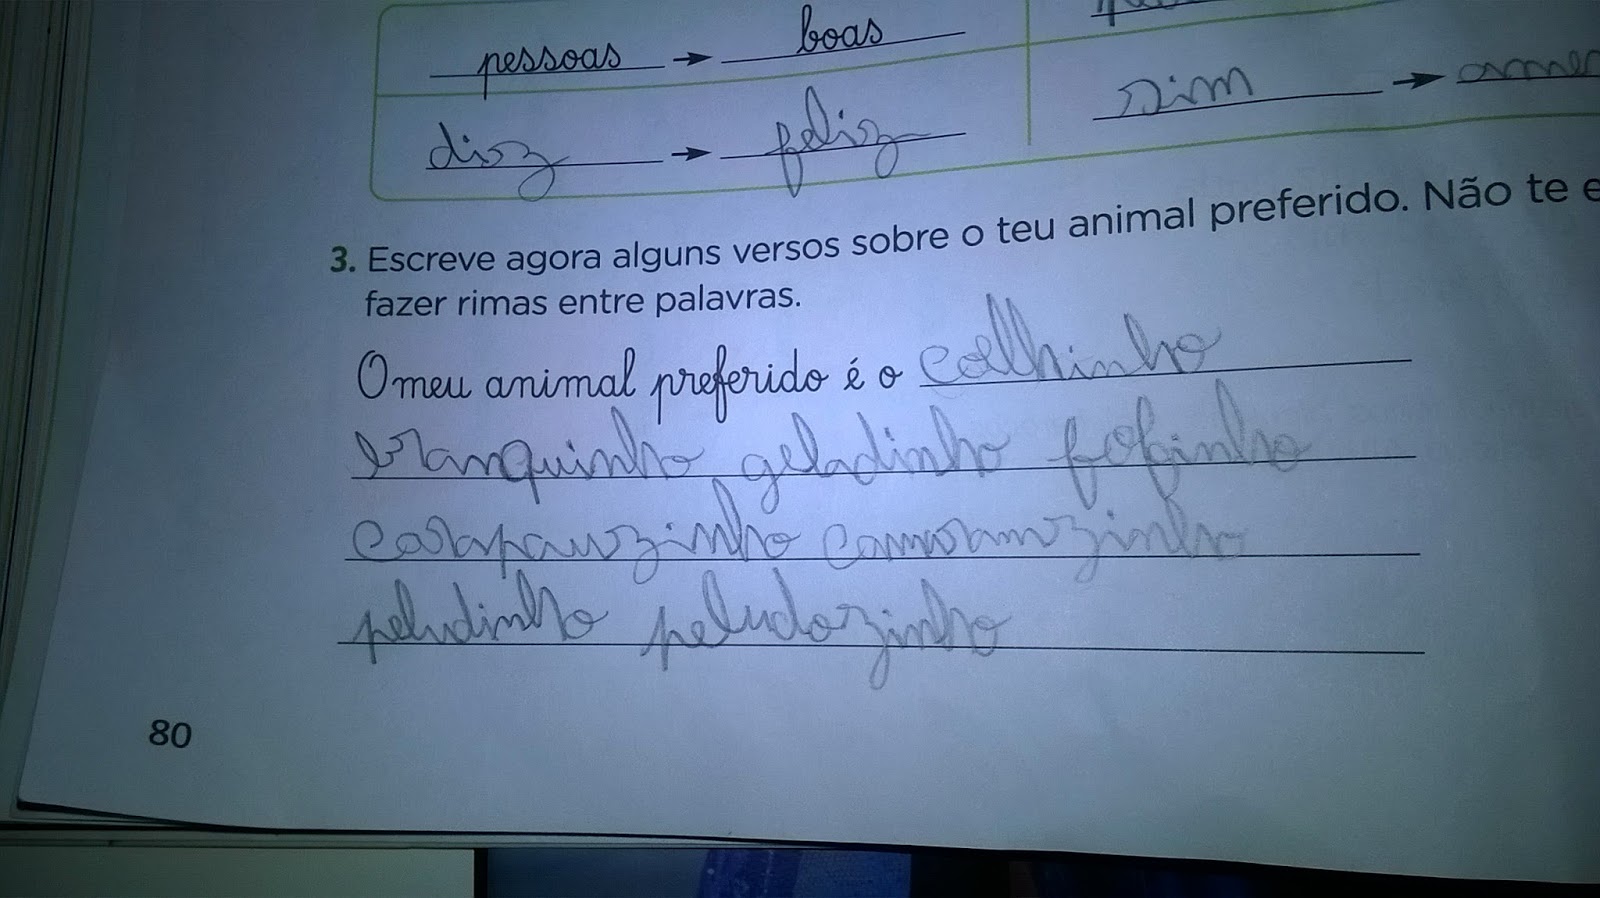 pessoas → boas
diz → feliz
sim →
3. Escreve agora alguns versos sobre o teu animal preferido. Não te e
fazer rimas entre palavras.
O meu animal preferido é o coelhinho
branquinho geladinho fofinho
carapauzinho
peludinho peludozinho
80